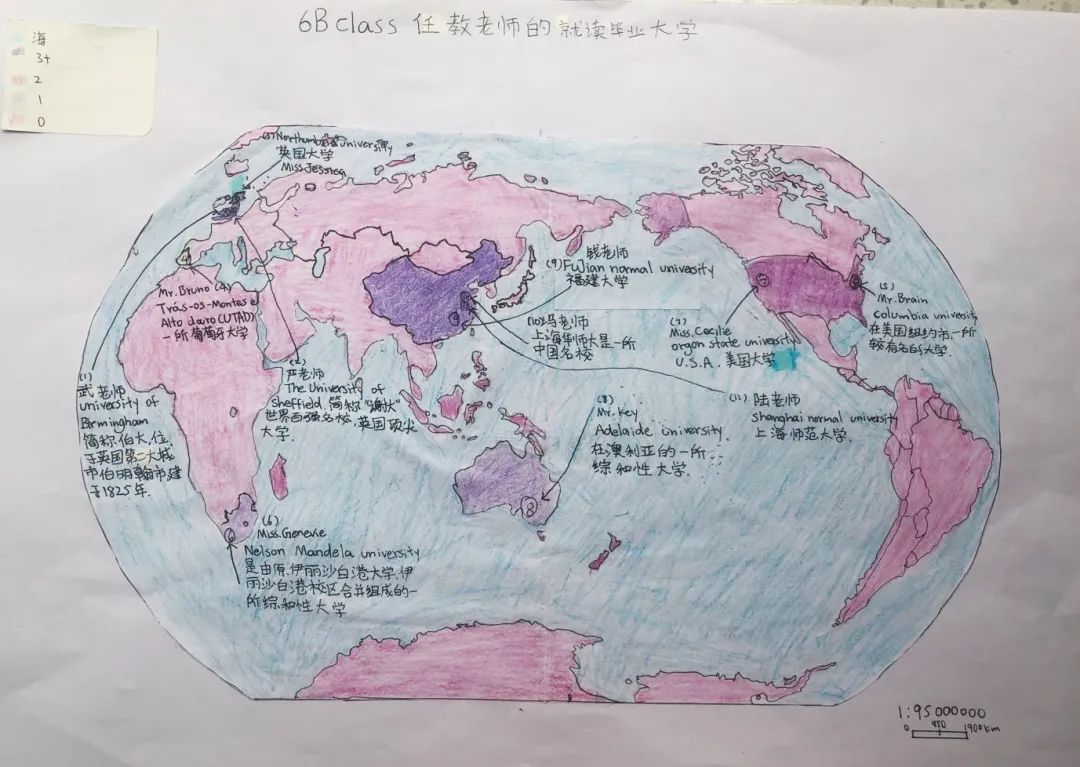 6B class 任教老师的就读毕业大学
海
3+
2
1
0
(3) Northumbria university
英国大学
Miss.Jessica
Mr.Bruno (4)
Trás-os-Montes e
Alto dairo (UTAD)
一所葡萄牙大学
(1)
武老师
university of
Birmingham
简称伯大,位
于英国第二大城
市伯明翰市建
于1825年.
(2)
严老师
The University of
Sheffield.简称"谢大"
世界百强名校,英国顶尖
大学.
钱老师
(9) Fujian normal university
福建大学
(10) 冯老师
上海华师大是一所
中国名校
(7)
Miss.Cecilie
orgon state university
U.S.A. 美国大学
(5)
Mr.Brain
columbia university
在美国纽约市一所
较有名的大学.
(8)
Mr.key
Adelaide university.
在澳利亚的一所
综和性大学.
(11) 陆老师
shanghai normal university
上海师范大学.
(6)
Miss.Genevie
Nelson Mandela university
是由原.伊丽沙白港大学.伊
丽沙白港校区合并组成的一
所综和性大学
4
5
5
9
8
6
1:95000000
0 950 1900km